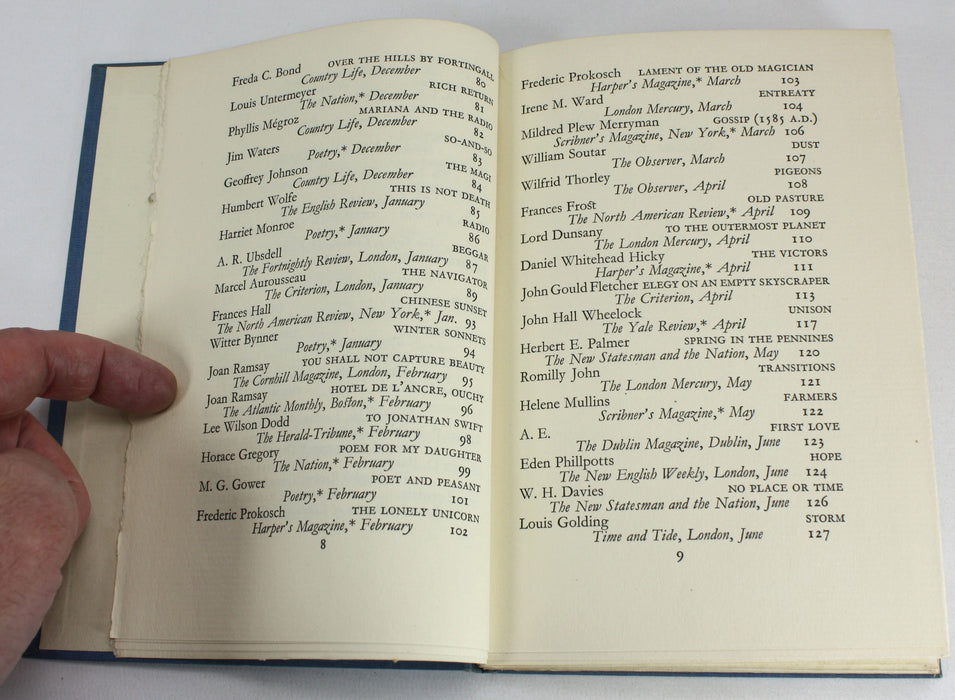 Freda C. Bond OVER THE HILLS BY FORTINGALL
Country Life, December 80
Louis Untermeyer RICH RETURN
The Nation,* December 81
Phyllis Mégroz MARIANA AND THE RADIO
Country Life, December 82
Jim Waters SO-AND-SO
Poetry,* December 83
Geoffrey Johnson THE MAGI
Country Life, December 84
Humbert Wolfe THIS IS NOT DEATH
The English Review, January 85
Harriet Monroe RADIO
Poetry,* January 86
A. R. Ubsdell BEGGAR
The Fortnightly Review, London, January 87
Marcel Aurousseau THE NAVIGATOR
The Criterion, London, January 89
Frances Hall CHINESE SUNSET
The North American Review, New York,* Jan. 93
Witter Bynner WINTER SONNETS
Poetry,* January 94
Joan Ramsay YOU SHALL NOT CAPTURE BEAUTY
The Cornhill Magazine, London, February 95
Joan Ramsay HOTEL DE L'ANCRE, OUCHY
The Atlantic Monthly, Boston,* February 96
Lee Wilson Dodd TO JONATHAN SWIFT
The Herald-Tribune,* February 98
Horace Gregory POEM FOR MY DAUGHTER
The Nation,* February 99
M. G. Gower POET AND PEASANT
Poetry,* February 101
Frederic Prokosch THE LONELY UNICORN
Harper's Magazine,* February 102
8
Frederic Prokosch LAMENT OF THE OLD MAGICIAN
Harper's Magazine,* March 103
Irene M. Ward ENTREATY
London Mercury, March 104
Mildred Plew Merryman GOSSIP (1585 A.D.)
Scribner's Magazine, New York,* March 106
William Soutar DUST
The Observer, March 107
Wilfrid Thorley PIGEONS
The Observer, April 108
Frances Frost OLD PASTURE
The North American Review,* April 109
Lord Dunsany TO THE OUTERMOST PLANET
The London Mercury, April 110
Daniel Whitehead Hicky THE VICTORS
Harper's Magazine,* April 111
John Gould Fletcher ELEGY ON AN EMPTY SKYSCRAPER
The Criterion, April 113
John Hall Wheelock UNISON
The Yale Review,* April 117
Herbert E. Palmer SPRING IN THE PENNINES
The New Statesman and the Nation, May 120
Romilly John TRANSITIONS
The London Mercury, May 121
Helene Mullins FARMERS
Scribner's Magazine,* May 122
A. E. FIRST LOVE
The Dublin Magazine, Dublin, June 123
Eden Phillpotts HOPE
The New English Weekly, London, June 124
W. H. Davies NO PLACE OR TIME
The New Statesman and the Nation, June 126
Louis Golding STORM
Time and Tide, London, June 127
9